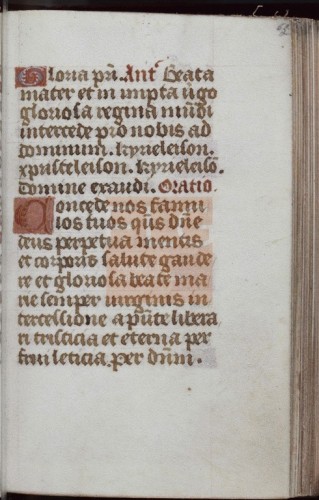 Gloria pr̃i. Añt Beata
mater et in nupta ṽgo
gloriosa regina mũdi
intercede pro nobis ad
dominum. kyrieleison.
xpristeleison. kyrieleisõ.
Domine exaudi. Oratio.
Concede nos famu
los tuos q̃us dñe
deus perpetua mentis
et corporis salute gaude
re et gloriosa beate ma
rie semper virginis in
tercessione a p̃nte libera
ri tristicia et eterna per
frui leticia. per dñm.